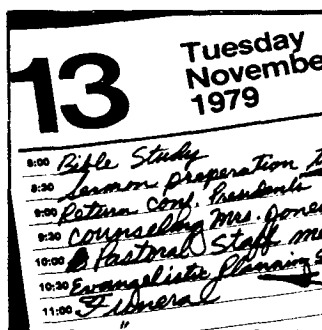 13
Tuesday
Novembe
1979
8:00 Bible Study
8:30 Sermon preperation
9:00 Return conf. Presidents
9:30 Counseling Mrs. Jone
10:00 Pastoral Staff me
10:30 Evangelistic Planning S
11:00 Funeral
"